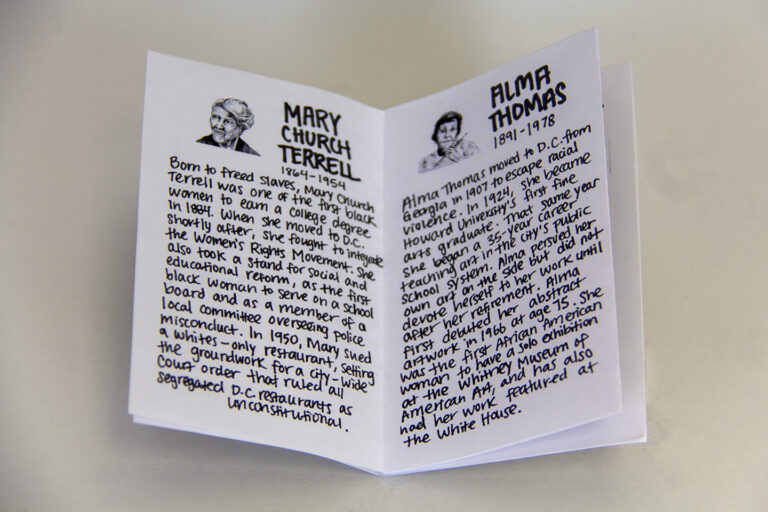 MARY
CHURCH
TERRELL
1864-1954
Born to freed slaves, Mary Church
Terrell was one of the first black
women to earn a college degree
in 1884. When she moved to D.C.
shortly after, she fought to integrate
the Women's Rights Movement. She
also took a stand for social and
educational reform, as the first
black woman to serve on a school
board and as a member of a
local committee overseeing police
misconduct. In 1950, Mary sued
a whites-only restaurant, setting
the groundwork for a city-wide
Court order that ruled all
segregated D.C restaurants as
unconstitutional.
ALMA
THOMAS
1891-1978
Alma Thomas moved to D.C. from
Georgia in 1907 to escape racial
violence. In 1924, she became
Howard University's first fine
arts graduate. That same year
she began a 35-year career
teaching art in the city's public
school system. Alma persued her
own art on the side but did not
devote herself to her work until
after her retirement. Alma
first debuted her abstract
artwork in 1966 at age 75. She
was the first African American
woman to have a solo exhibition
at the Whitney Museum of
American Art, and has also
had her work featured at
the White House.